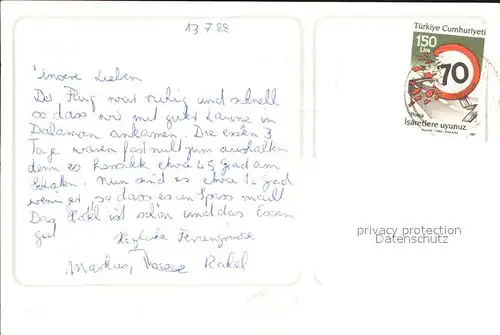 13 7 88
Unsere Lieben
Der Flug war ruhig und schnell
so dass wir mit guter Laune in
Dalaman ankamen. Die ersten 3
Tage waren fast nicht zum aushalten
denn es herrschte etwa 45 Grad am
Schatten. Nun sind es etwa 10 Grad
weniger, so dass es uns Spass macht
Das Hotel ist schön und das Essen
gut
Herzliche Feriengrüsse
Markus, Rahel
Türkiye Cumhuriyeti
150
Lira
70
İşaretlere uyunuz.
privacy protection
Datenschutz